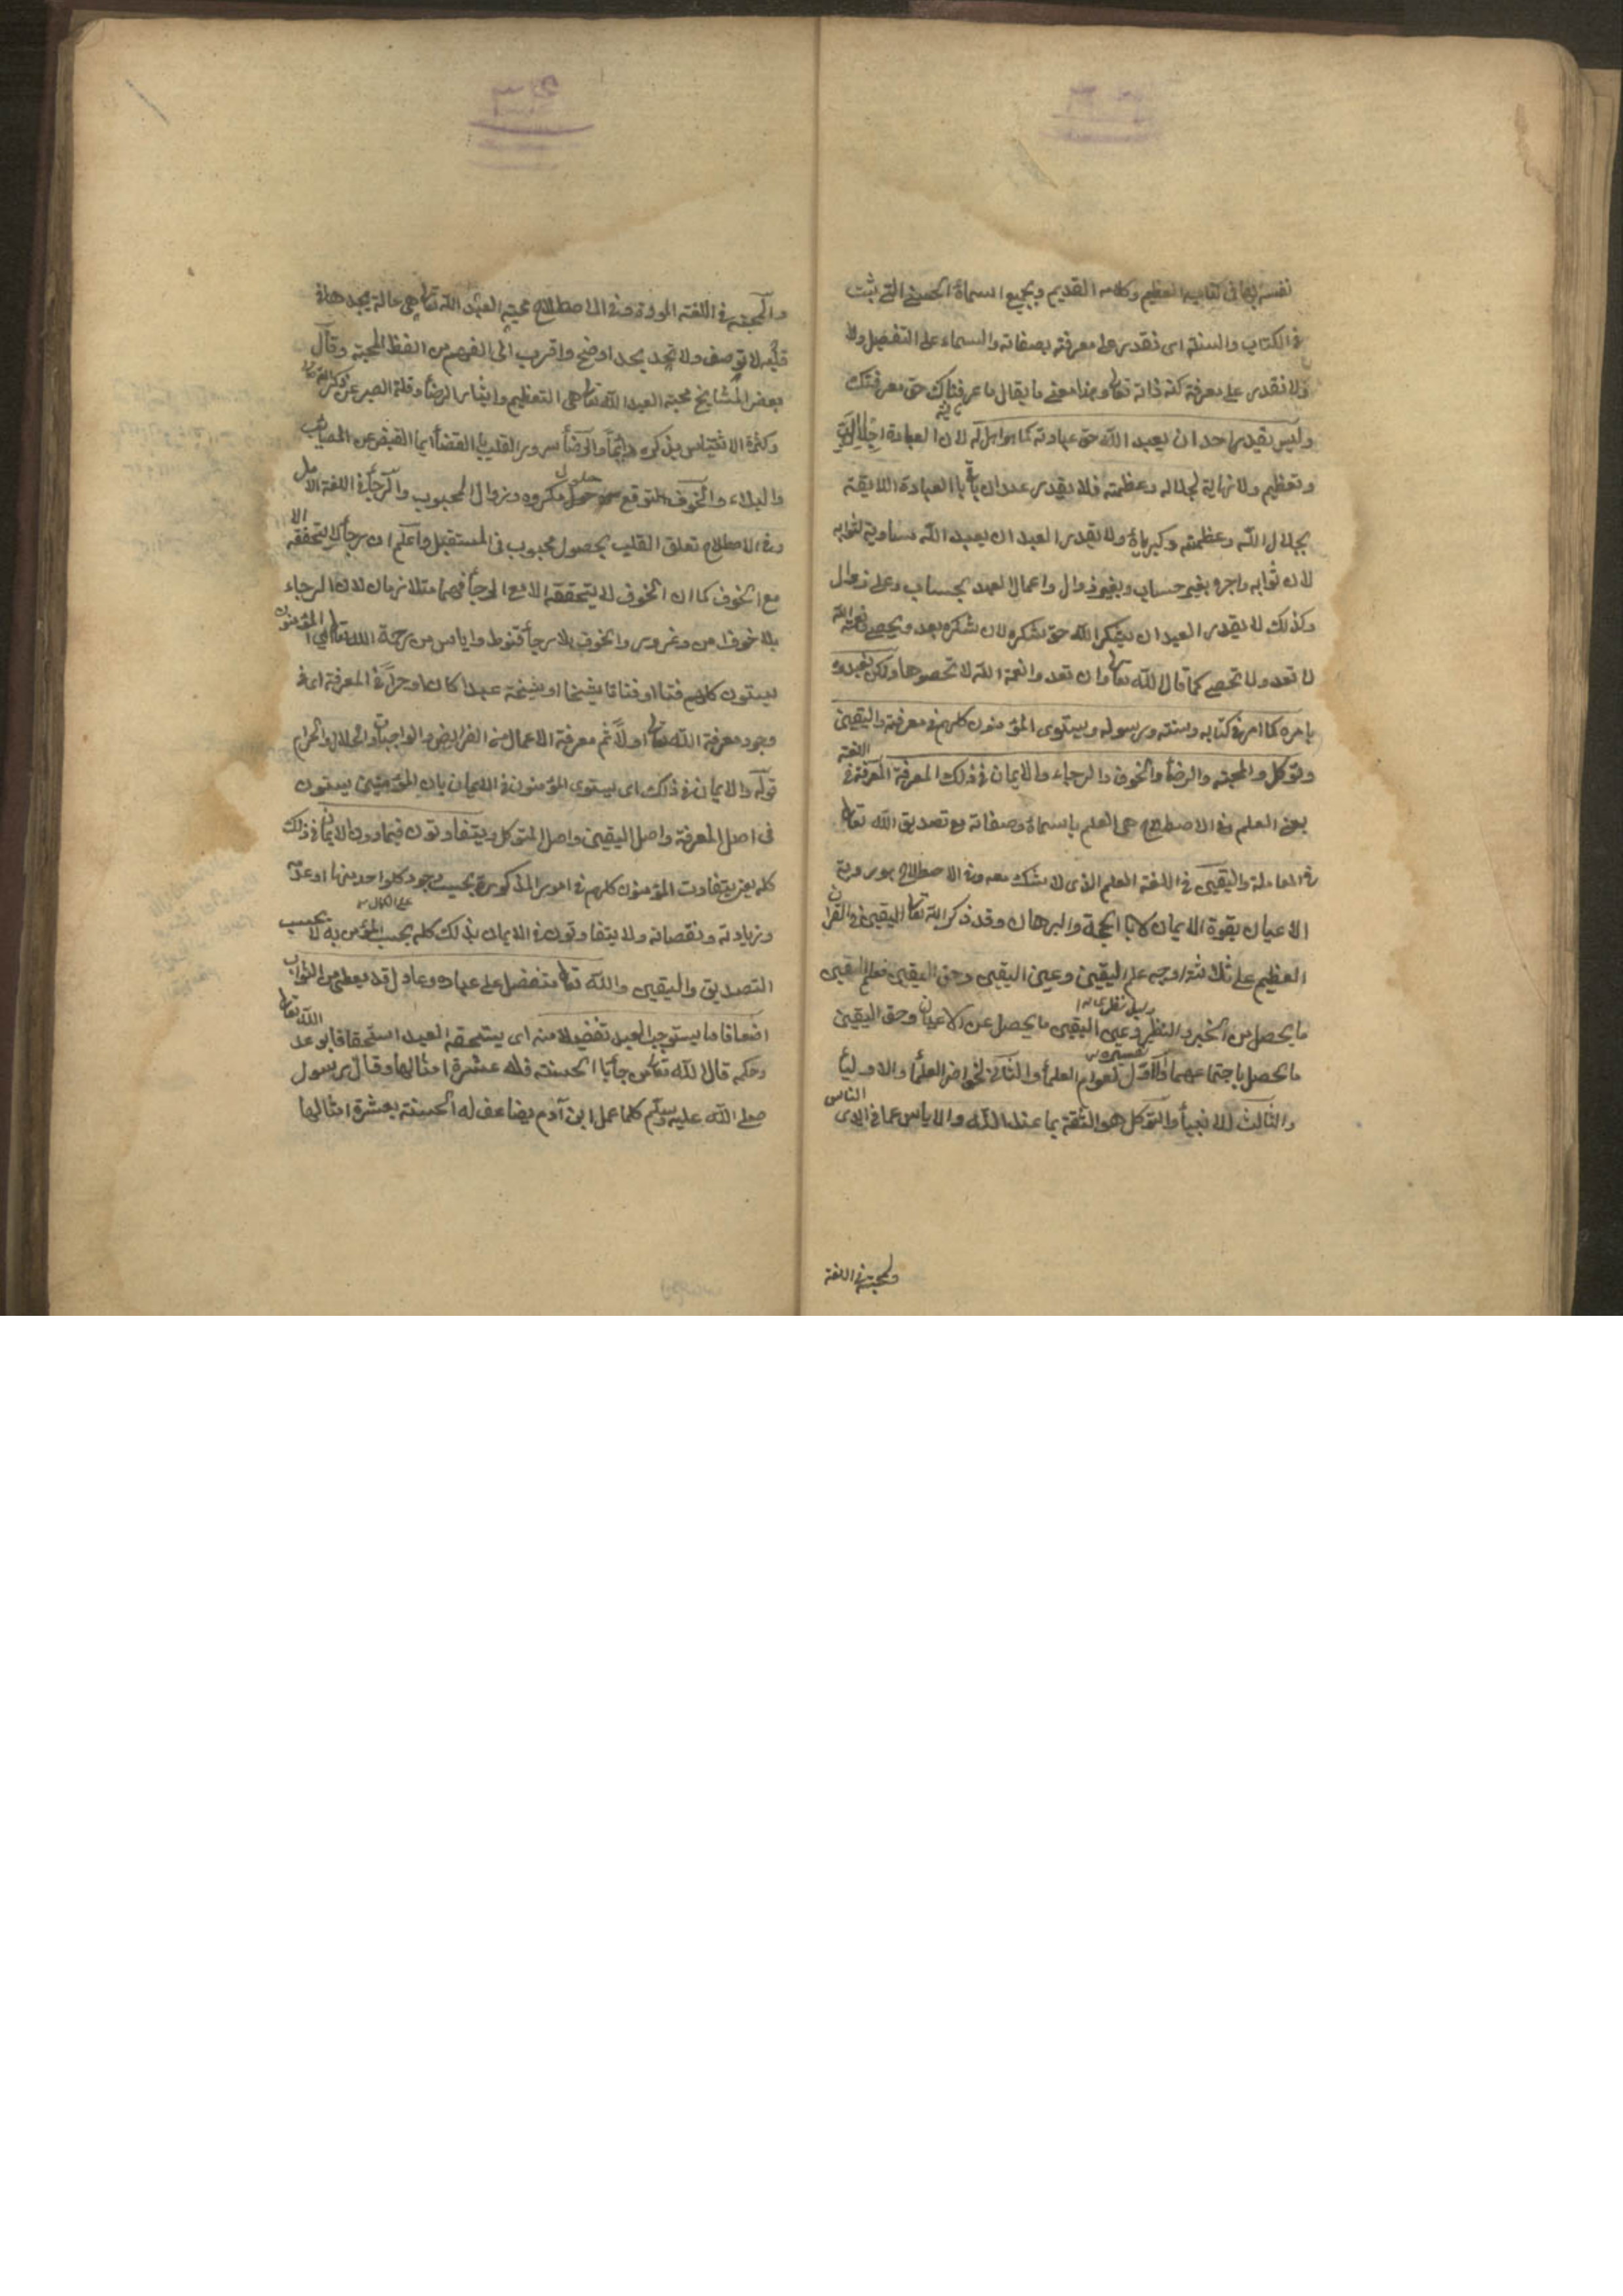 نفسه بها فى كتابه العظيم وكلامه القديم وبجميع اسمائه الحسنى التى يثبت
فى الكتاب والسنة اى نقدر على معرفته بصفاته واسماء على التفضيل ولا
ولا نقدر على معرفة كنه ذاته تعا وبهذا معنى ما يقال ما عرفناك حق معرفتك
وليس يقدر احد ان يعبد الله حق عبادته كما هو اهل له لان العبادة
وتعظيم ولا نهاية لجلاله وعظمته فلا يقدر عبد ان ياتى با العبادة اللايقة
بجلال الله وعظمته وكبريائه ولا يقدر العبد ان يعبد الله مساوية لثوابه
لان ثوابه واجره بغير حساب وبغير زوال واعمال العبد بحساب وعلى زوال
وكذلك لا يقدر العبد ان يشكر الله حق شكره لان شكره يعد ويحصى ونعمة الله
لا تعد ولا تحصى كما قال الله تعا وان تعدوا نعمة الله لا تحصوها ولكن يعبده
بامره كما امر فى كتابه وسنة رسوله ويستوى المؤمنون كلهم فى معرفة واليقين
وتوكل والمحبة والرضأ والخوف والرجاء والايمان فى ذلك المعرفة المعرفة فى اللغة
بمعنى العلم وفى الاصطلاح هى العلم باسمائه وصفاته مع تصديق الله تعا
فى المعاملة واليقين فى اللغة العلم الذى لا شك معه وفى الاصطلاح هو روية
الاعيان بقوة الايمان لا با الحجة والبرهان وقد ذكر الله تعا اليقين فى القران
العظيم على ثلاثة اوجه علم اليقين وعين اليقين وحق اليقين فعلم اليقين
ما يحصل من الخبر والنظر وعين اليقين ما يحصل عن الاعيان وحق اليقين
ما يحصل باجتماعهما والاول لعوام العلمأ والثانى لخواص العلمأ والاوليأ
والثالث للانبيأ والتوكل هو الثقة بما عند الله والاياس عما فى ايدى الناس
والمحبة فى اللغة
والمحبة فى اللغة المودة وفى الاصطلاح محبة العبد الله تعا هى حالة يجدها فى
قلبه لا توصف ولا تحد بحد اوضح واقرب الى الفهم من لفظ المحبة وقال
بعض المشايخ محبة العبد الله تعا هى التعظيم وايثار الرضأ وقلة الصبر عن ذكر الله تعا
وكثرة الاستيناس بذكره دائما والرضأ سرور القلب با القضأ اى القبض عن المصايب
والبلاء والخوف التوقع حلول مكروه وزوال المحبوب والرجأ فى اللغة الامل
وفى الاصطلاح تعلق القلب بحصول محبوب فى المستقبل واعلم ان رجأ لا يتحققه الا
مع الخوف كما ان الخوف لا يتحققه الا مع الرجأ فهما متلازمان لان الرجاء
بلا خوف امن وغرور والخوف بلا رجأ قنوط واياس من رحمة الله تعالى المؤمنون
يستون كلهم فتا او فتاتا شيخا او شيخة عبدا كان او حرا فى المعرفة اى فى
وجود معرفة الله تعا اولا ثم معرفة الاعمال من الفرايض والواجبات والحلال والحرام
قوله والايمان فى ذلك اى يستوى المؤمنون فى الايمان بان المؤمنين يستون
فى اصل المعرفة واصل اليقين واصل التوكل ويتفاوتون فيما دون الايمان فى ذلك
كله يعنى يتفاوت المؤمنون كلهم فى امور المذكورة بحسب وجود كل واحد منها او عدمه
وزيادته ونقصانه ولا يتفاوتون فى الايمان بذلك كله بحسب المؤمن به لا بحسب
التصديق واليقين والله تعا متفضل على عباده وعادل قد يعطى من الثواب
اضعاف ما يستوجب العبد تفضيلا منه اى يستحقه العبد استحقاقا بوعد الله تعا
وحكم قال الله تعا من جأ با الحسنة فله عشرة امثالها وقال رسول
صلى الله عليه وسلم كلما عمل ابن آدم يضاعف له الحسنة بعشرة امثالها